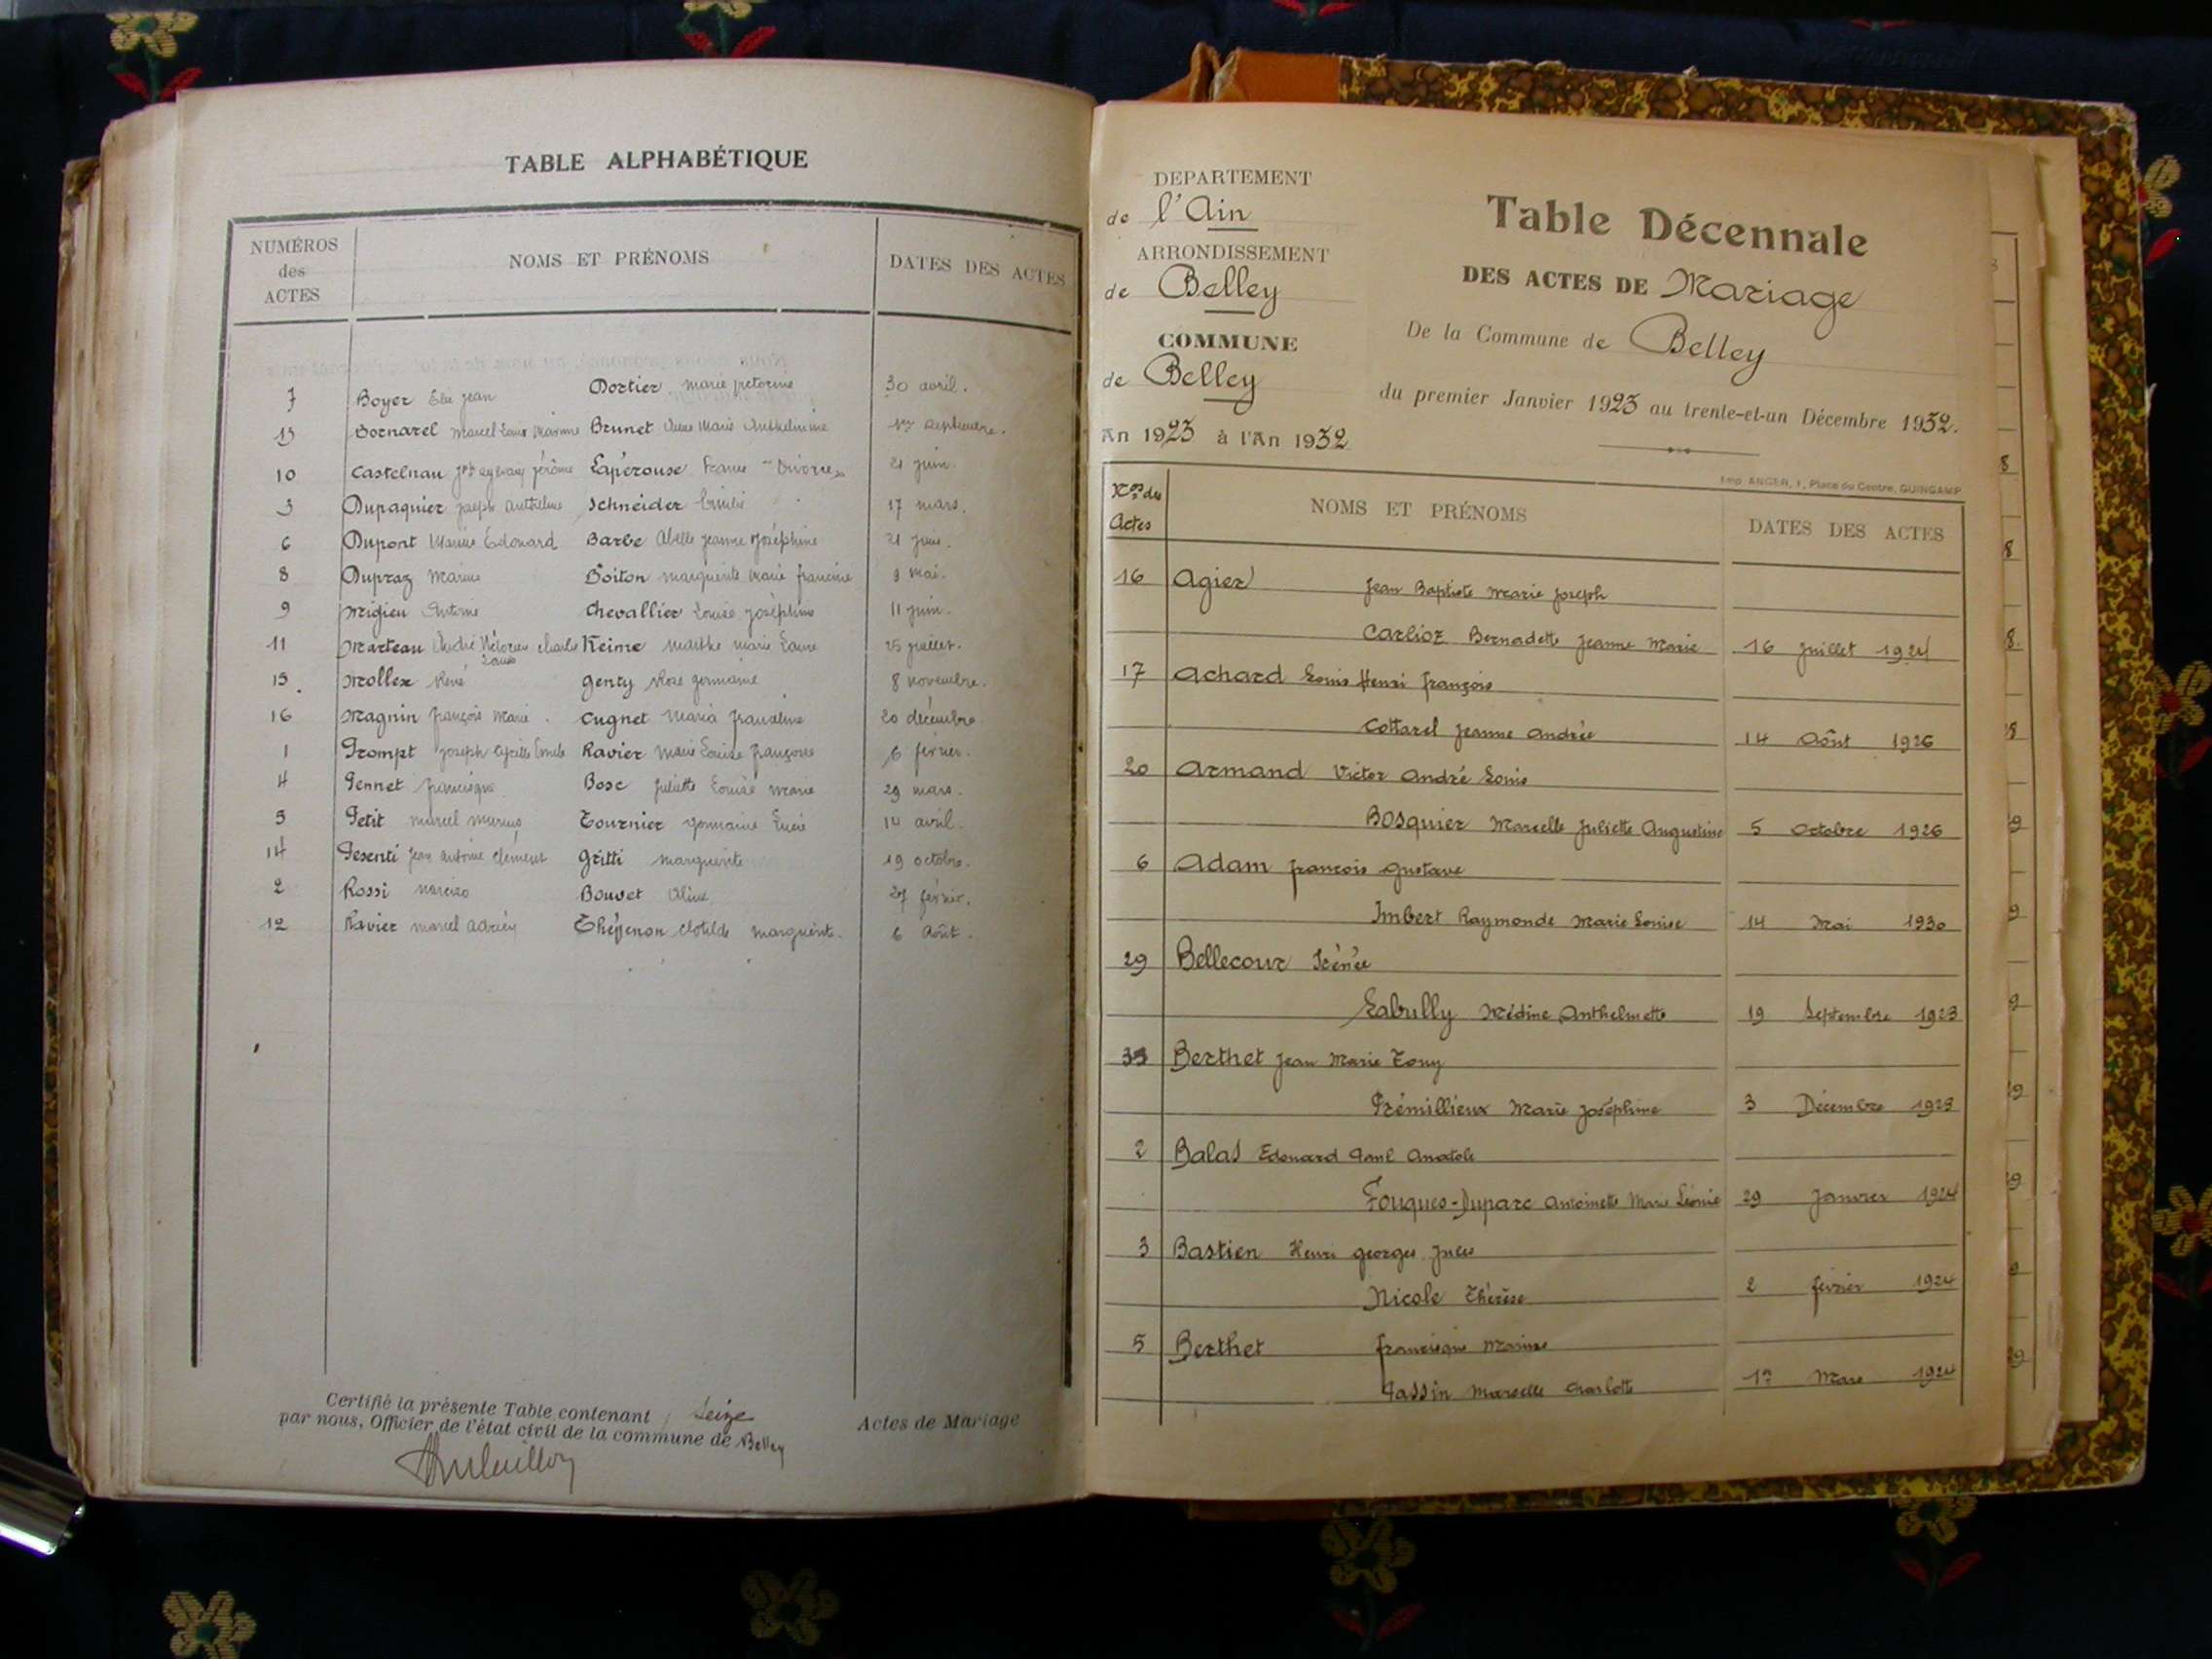 TABLE ALPHABÉTIQUE
NUMÉROS des ACTES NOMS ET PRÉNOMS DATES DES ACTES
7 Boyer Elie Jean Dortier Marie 30 avril.
13 Bornarel Marcel Louis Maxime Brunet Marie Anthelmine 1er septembre.
10 Castelnau Jérôme Lapérouse 21 juin.
3 Dupaquier Joseph Anthelme Schneider Emilie 17 mars.
6 Dupont Marius Édouard Barbe Abelle Jeanne Joséphine 21
8 Dupraz Marius Boiton Marguerite Marie Francine 9 mai.
9 Migieu Antoine Chevallier Louise Joséphine 11 juin.
11 Marteau André Victorien Charles Louis Reine Marthe Marie Laure 25 juillet.
15 Mollex René Genty Rose Germaine 8 novembre.
16 Magnin François Marie Cugnet Maria 20 décembre
1 Prompt Joseph Emile Ravier Marie Louise Françoise 6 février.
4 Pennet Francisque Bosc Juliette Louise Marie 29 mars.
5 Petit Marcel Marius Tournier Germaine Lucie 14 avril.
14 Pesenti Jean Antoine Clément Gritti Marguerite 19 octobre.
2 Rossi Narciso Bouvet Aline 27 février.
12 Ravier Marcel Adrien Thévenon Clotilde Marguerite. 6 Août.
Certifié la présente Table contenant Seize Actes de Mariage
par nous, Officier de l'état civil de la commune de Belley
DEPARTEMENT
de l'Ain
ARRONDISSEMENT
de Belley
COMMUNE
de Belley
An 1923 à l'An 1932
Table Décennale
DES ACTES DE Mariage
De la Commune de Belley
du premier Janvier 1923 au trente-et-un Décembre 1932.
Imp. ANGER, 1, Place du Centre, GUINGAMP
Nos des Actes NOMS ET PRÉNOMS DATES DES ACTES
16 Agier Jean Baptiste Marie Joseph
Carlioz Bernadette Jeanne Marie 16 Juillet 1924
17 Achard Louis Henri François
Cottarel Jeanne Andrée 14 Août 1926
20 Armand Victor André Louis
Bosquier Marcelle Juliette Augustine 5 Octobre 1926
6 Adam François Gustave
Imbert Raymonde Marie Louise 14 Mai 1930
29 Bellecour Irénée
Labully Médine Anthelmette 19 Septembre 1923
35 Berthet Jean Marie Tony
Frémillieux Marie Joséphine 3 Décembre 1923
2 Balas Edouard Paul Anatole
Fouques-Duparc Antoinette Marie Léonie 29 Janvier 1924
3 Bastien Henri Georges Jules
Nicole Thérèse 2 Février 1924
5 Berthet Francisque Marius
Passin Marcelle Charlotte 1er Mars 1924